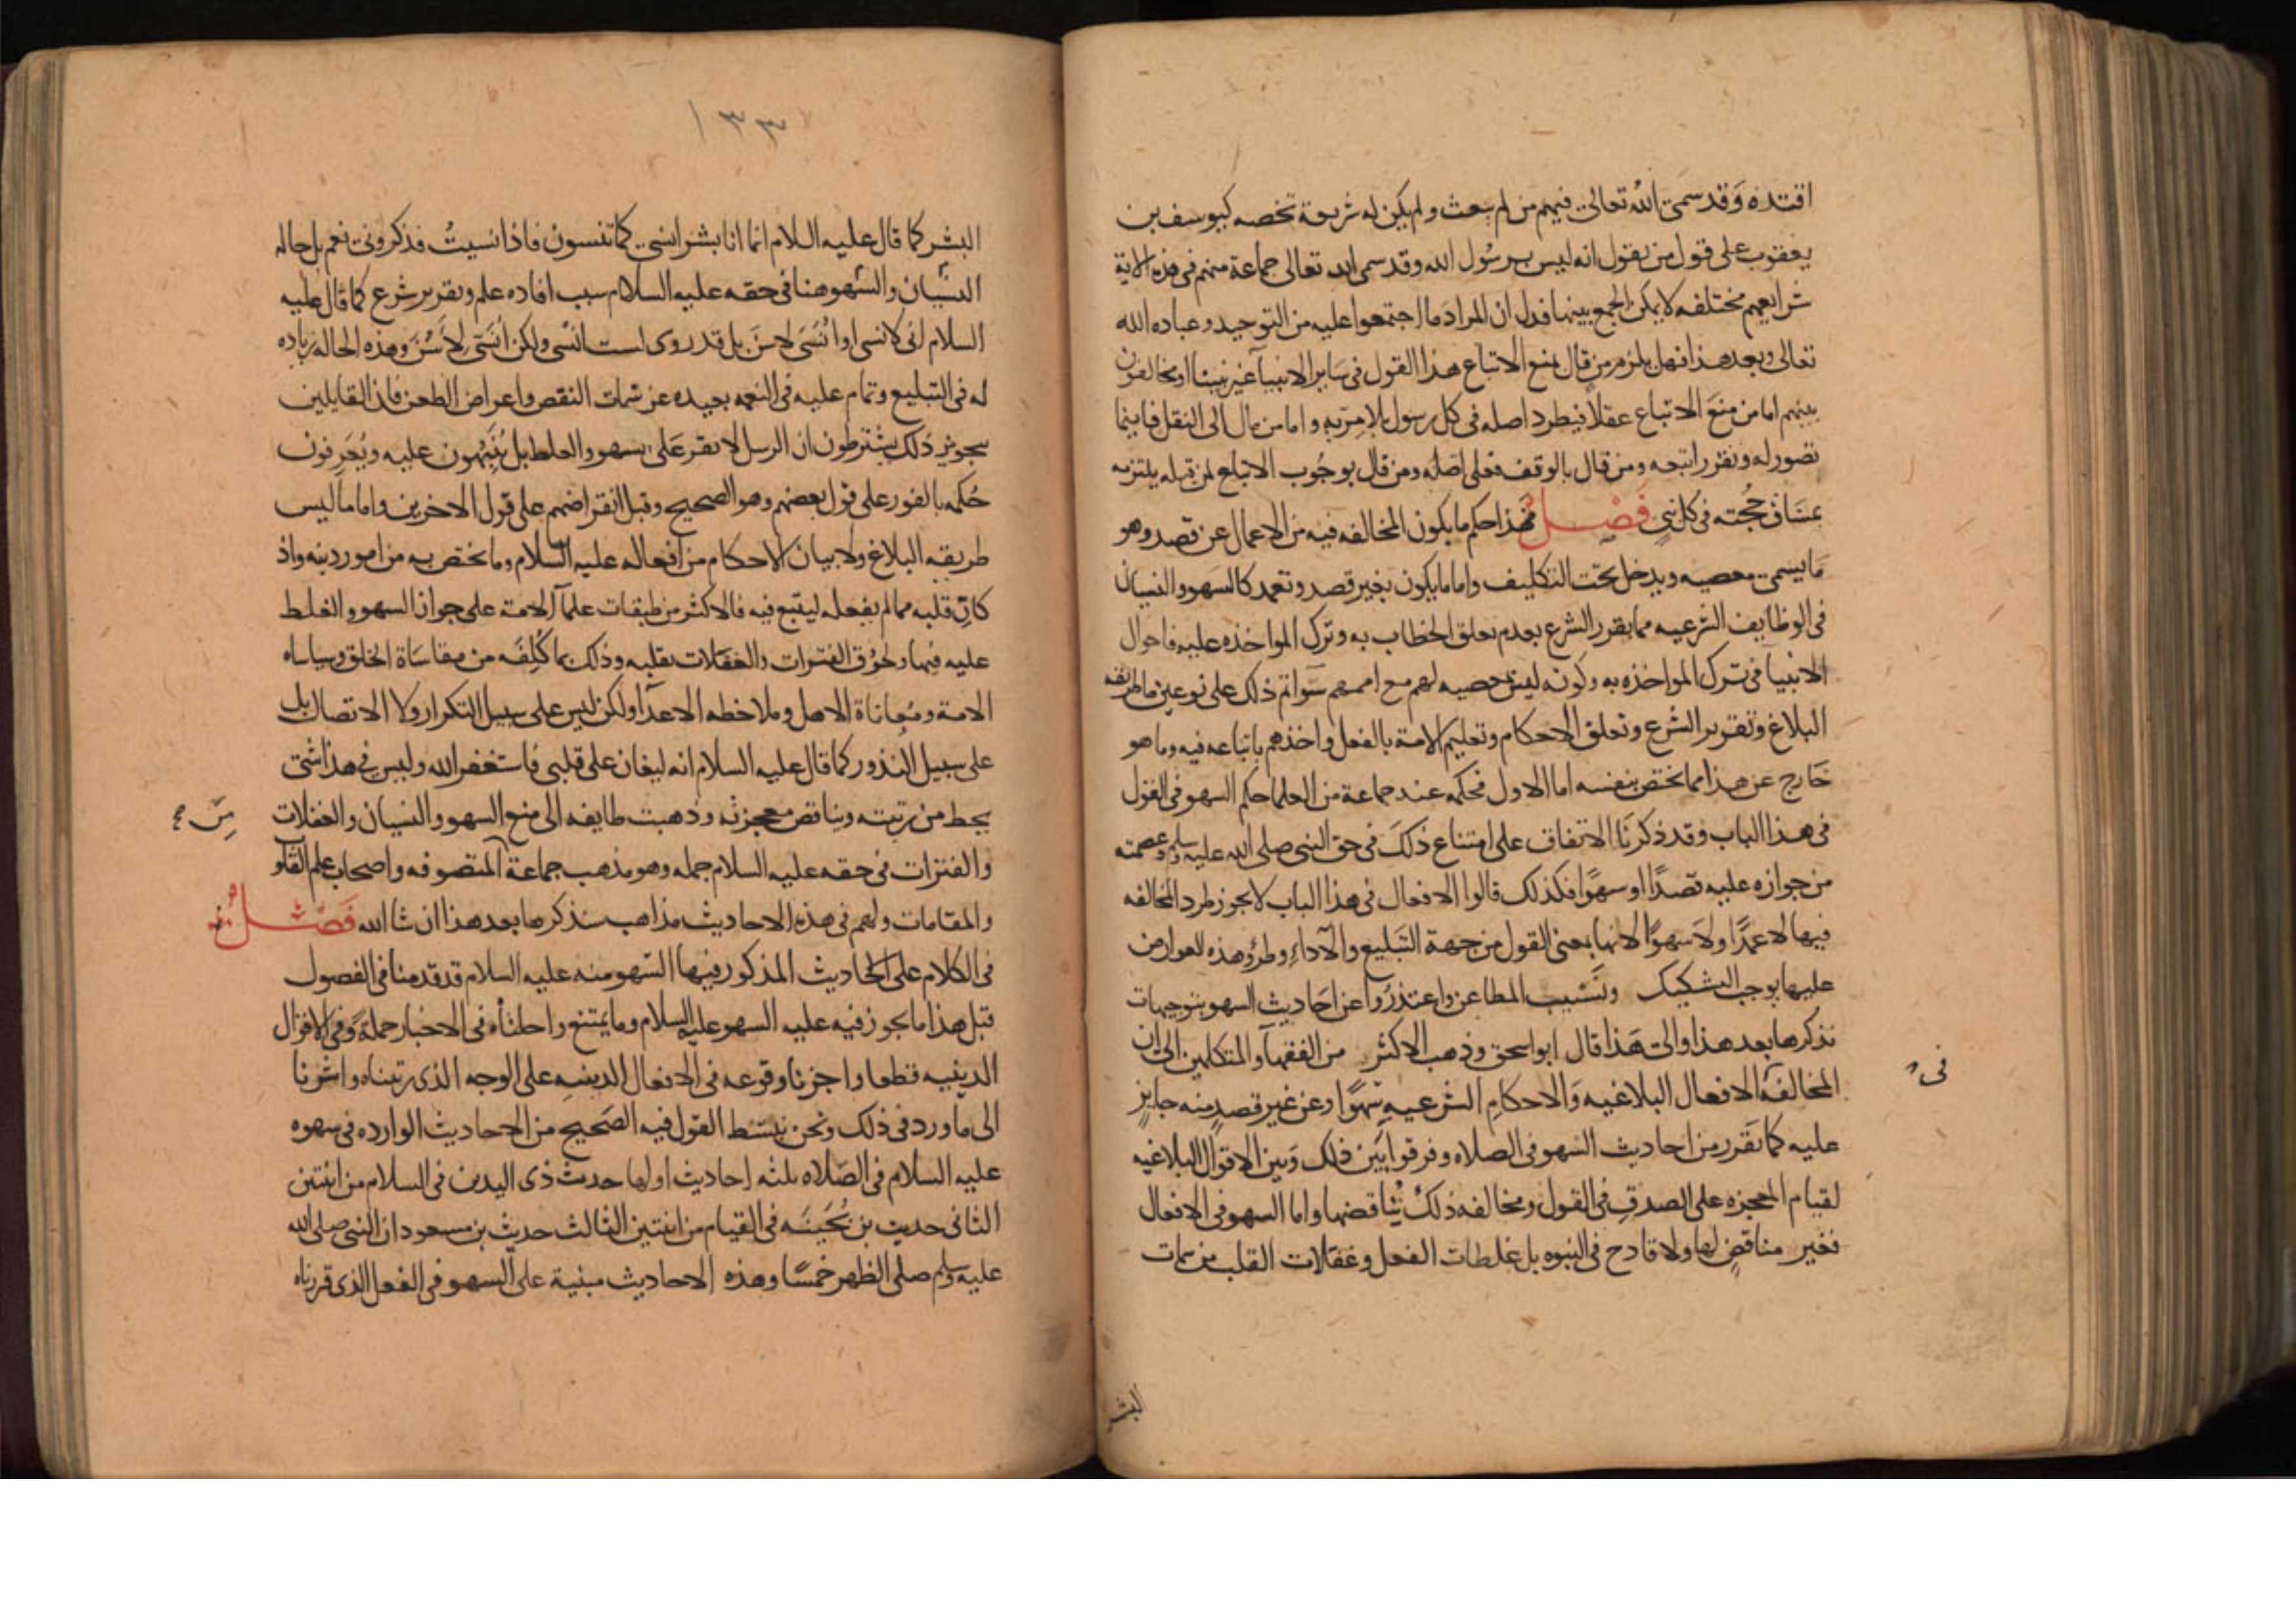 اقتده وقد سمى الله تعالى فيهم من لم يبعث ولم يكن له شريعة تخصه كيوسف بن
يعقوب على قول من يقول انه ليس برسول الله وقد سمى الله تعالى جماعة منهم في هذه الاية
شرايعهم مختلفه لا يمكن الجمع بينها فدل ان المراد ما اجتمعوا عليه من التوحيد وعباده الله
تعالى وبعد هذا فهل يلزم من قال بمنع الاتباع هذا القول في ساير الانبيآ غير نبينا او يخالفون
بينهم اما من منع الاتباع عقلا فيطرد اصله في كل رسول بلا مريه واما من مال الى النقل فاينما
تصور له وتقرر اتبعه ومن قال بالوقف فعلى اصله ومن قال بوجوب الاتباع لمن قبله يلتزمه
بمساق حجته في كل نبي فصل فهذا حكم ما يكون المخالفه فيه من الاعمال عن قصد وهو
ما يسمى معصيه ويدخل تحت التكليف واما ما يكون بغير قصد وتعمد كالسهو والنسيان
في الوظايف الشرعيه مما يقرر الشرع بعدم تعلق الخطاب به وترك المواخذه عليه فاحوال
الانبيا في ترك المواخذه به وكونه ليس بمعصيه لهم مع اممهم سوا ثم ذلك على نوعين ما طريقه
البلاغ وتقرير الشرع وتعلق الاحكام وتعليم الامة بالفعل واخذهم باتباعه فيه وما هو
خارج عن هذا مما يختص بنفسه اما الاول فحكمه عند جماعة من العلما حكم السهو في القول
في هذا الباب وقد ذكرنا الاتفاق على امتناع ذلك في حق النبي صلى الله عليه وسلم وعصمته
من جوازه عليه قصدًا او سهوًا فكذلك قالوا الافعال في هذا الباب لا يجوز طرد المخالفه
فيها لا عمدًا ولا سهوًا لانها بمعنى القول من جهة التبليغ والآداءِ وطرؤ هذه العوارض
عليها يوجب التشكيك وتسبيب المطاعن واعتذروا عن احاديث السهو بتوجيهات
نذكرها بعد هذا والى هذا قال ابو اسحق وذهب الاكثر من الفقهآ والمتكلمين الى ان
المخالفه الافعال البلاغيه والاحكام الشرعيه سهوًا وعن غير قصد منه جايز
في
عليه كما تقرر من احاديث السهو في الصلاه وفرقوا بين ذلك وبين الاقوال البلاغيه
لقيام المعجزه على الصدق في القول ومخالفه ذلك تناقضها واما السهو في الافعال
فغير مناقض لها ولا قادح في النبوه بل غلطات الفعل وغفلات القلب من سمات
البشر
١٣٣
البشر كما قال عليه السلام انما انا بشر انسى كما تنسون فاذا نسيت فذكروني نعم بل حاله
النسيان والسهو هنا في حقه عليه السلام سبب افاده علم وتقرير شرع كما قال عليه
السلام اني لانسى او انسى لاسن بل قد روى لست انسى ولكن انسى لاسن وهذه الحاله زياده
له في التبليغ وتمام عليه في النعمه بعيده عن سمات النقص واعراض الطعن فان القايلين
بجويز ذلك يشترطون ان الرسل لا تقر على سهو والغلط بل ينبهون عليه ويعرفون
حكمه بالفور على قول بعضهم وهو الصحيح وقبل انقراضهم على قول الاخرين واما ما ليس
طريقه البلاغ ولا بيان الاحكام من افعاله عليه السلام وما يختص به من امور دينه واذ
كار قلبه مما لم يفعله ليتبع فيه فالاكثر من طبقات علمآ الامة على جواز السهو والغلط
عليه فيها ولحوق الفترات والغفلات بقلبه وذلك بما كلفه من مقاساة الخلق وسياساه
الامة ومعاناة الاهل وملاحظه الاعدآ ولكن ليس على سبيل التكرار ولا الاتصال بل
على سبيل الندور كما قال عليه السلام انه ليغان على قلبي فاستغفر الله وليس في هذا شي
يحط من رتبته ويناقض معجزته وذهبت طايفه الى منع السهو والنسيان والغفلات
والفترات في حقه عليه السلام جمله وهو مذهب جماعة المتصوفه واصحاب علم القلو
والمقامات ولهم في هذه الاحاديث مذاهب سنذكرها بعد هذا ان شا الله فصل
في الكلام على الاحاديث المذكور فيها السهو منه عليه السلام قد قدمنا في الفصول
قبل هذا ما يجوز فيه عليه السهو عليه السلام وما يمتنع واحلناه في الاخبار جملة وفي الاقوال
الدينيه قطعا واجزنا وقوعه في الافعال الدينيه على الوجه الذي رتبناه واشرنا
الى ما ورد في ذلك ونحن نبسط القول فيه الصحيح من الاحاديث الوارده في سهوه
عليه السلام في الصلاه ثلثه احاديث اولها حديث ذي اليدين في السلام من اثنتين
الثاني حديث بن بحينه في القيام من اثنتين الثالث حديث بن مسعود ان النبي صلى الله
عليه وسلم صلى الظهر خمسًا وهذه الاحاديث مبنية على السهو في الفعل الذي قررناه